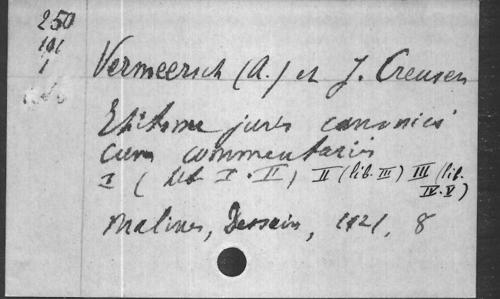 250
191
1
Vermeersch (A.) et J. Creusen
Epitome juris canonici
cum commentariis
I (lib I.II) II (lib. III) III (lib.
IV.V)
Malines, Dessain, 1921, 8